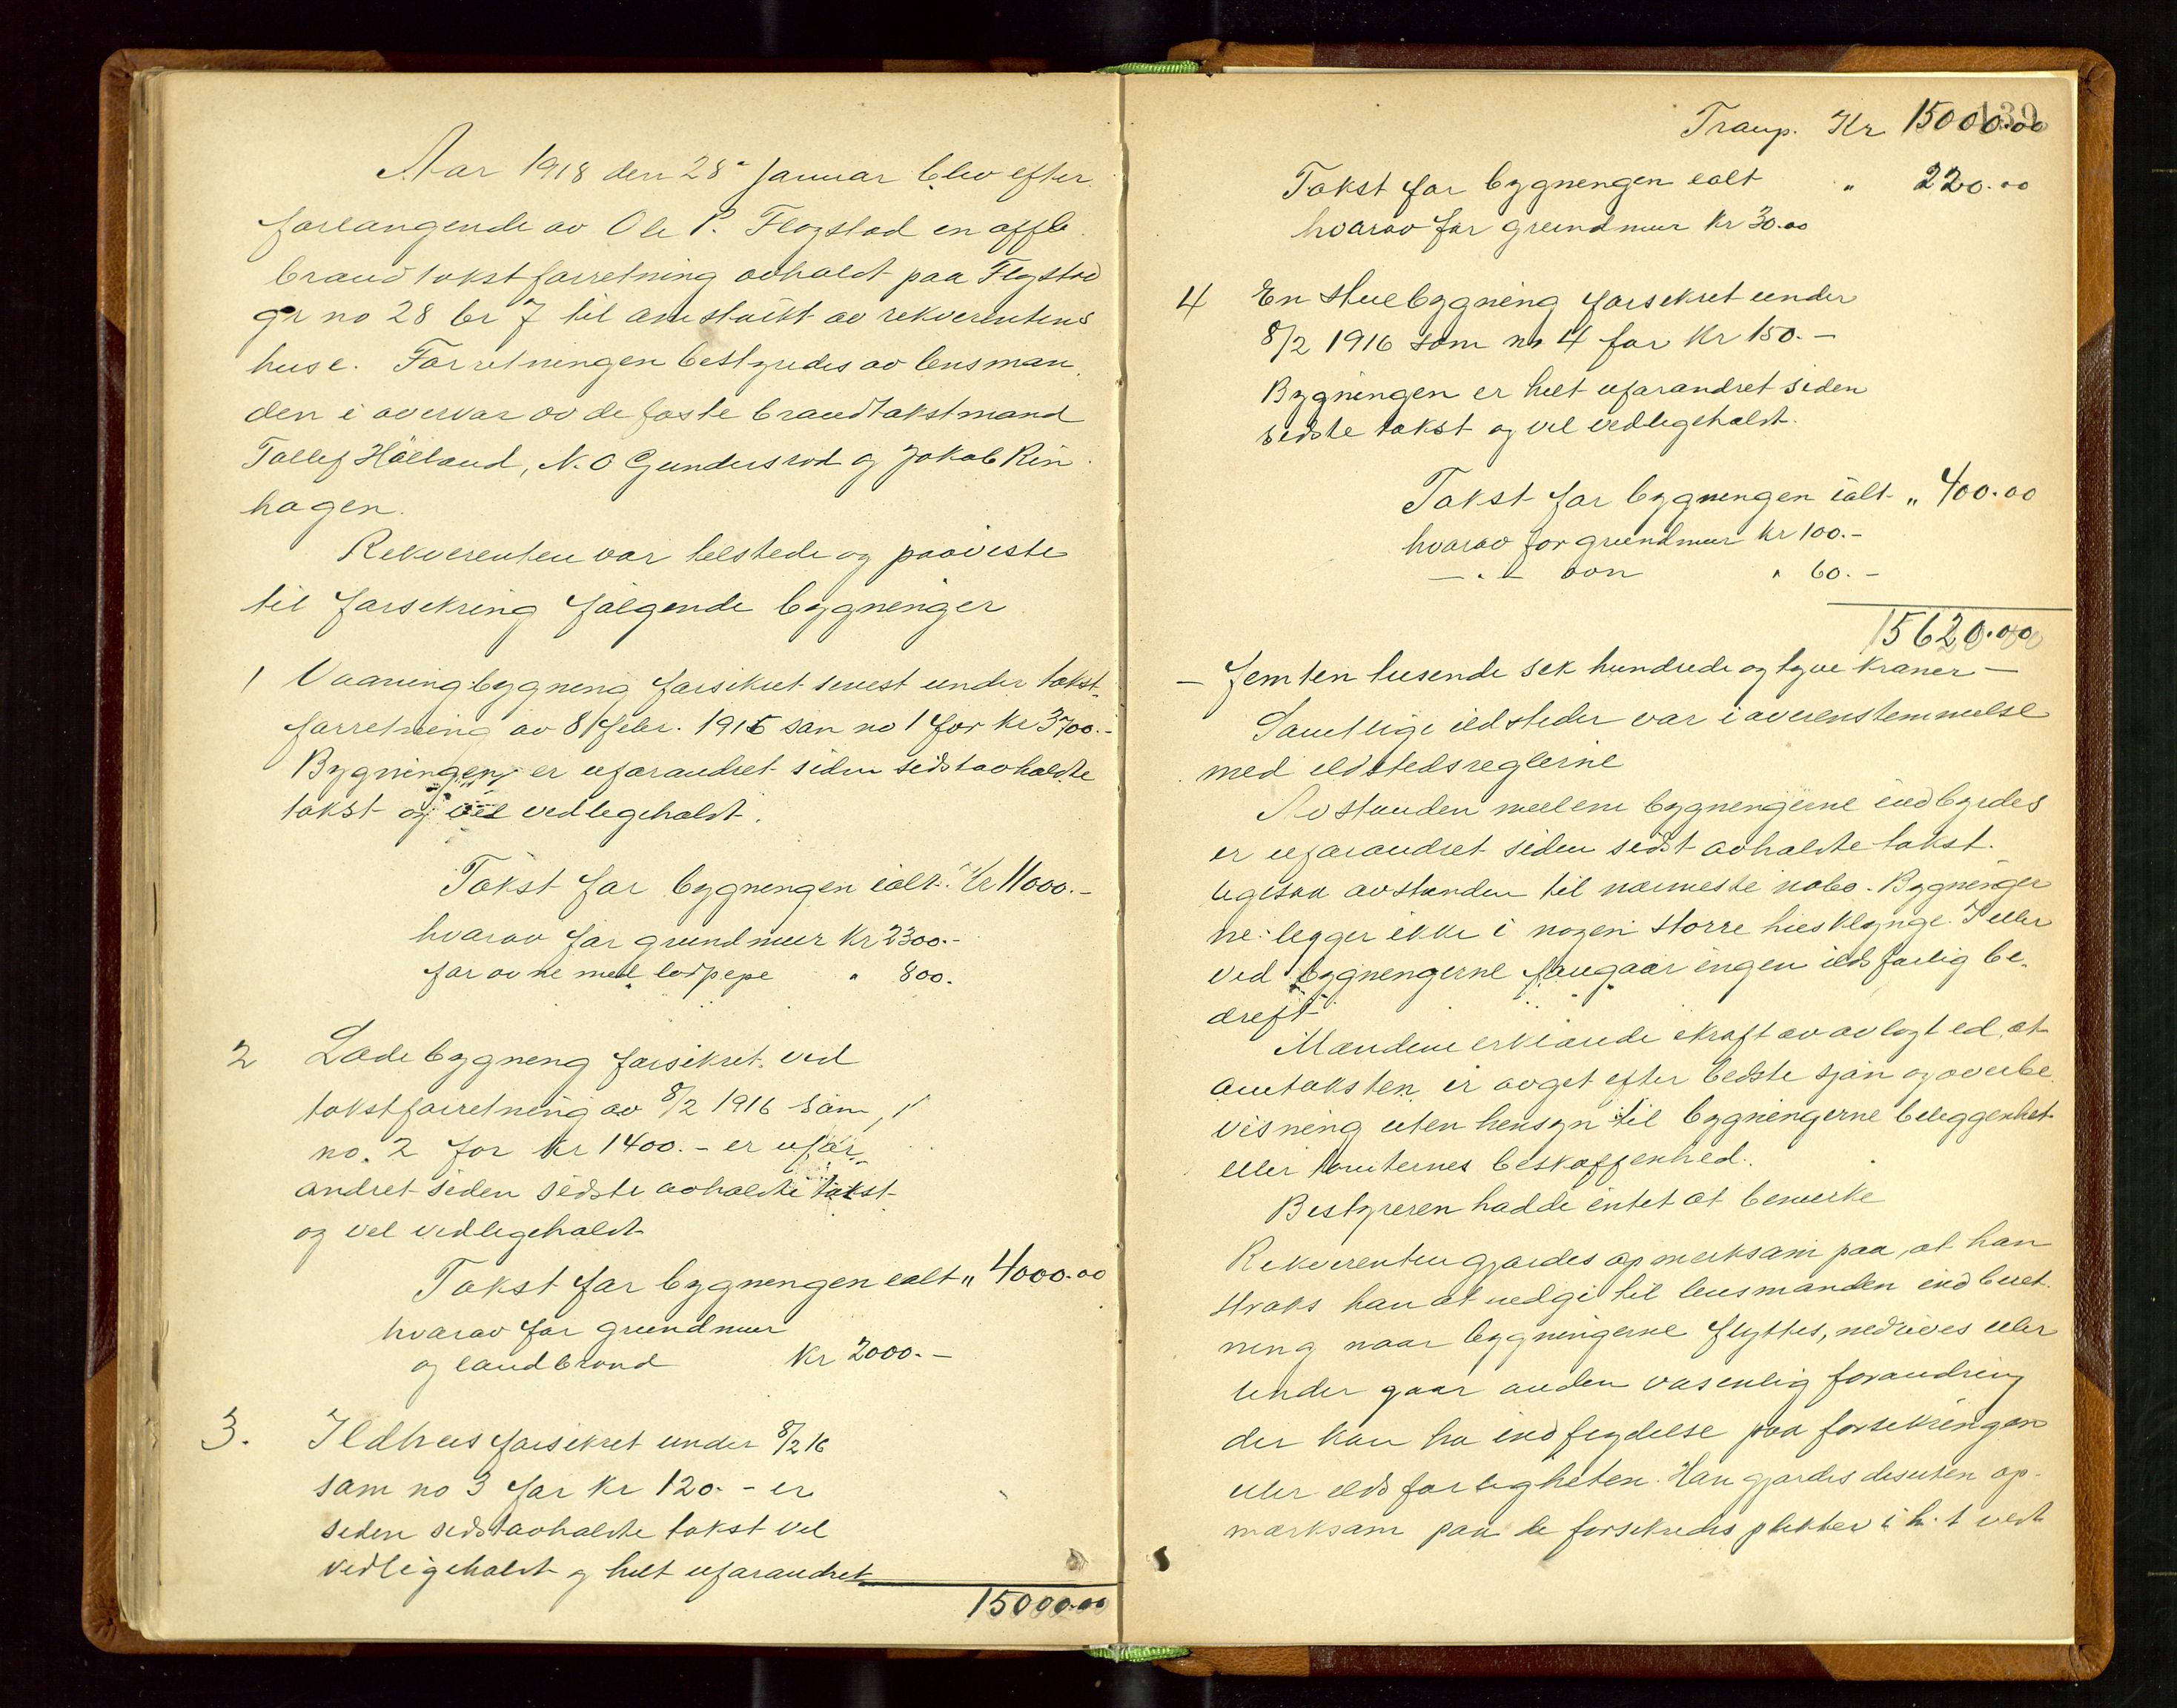 Aar 1918 den 28 Januar blev efter
forlangende av Ole P. Flogstad en offtl.
brandtakstforretning avholdt paa Flogstad
gr no 28 br 7 til omtakst av rekverentens
huse. Forretningen bestyredes av lensman-
den i overvær av de faste brandtakstmænd
Tollef Hölland, N. O Gundersrod og Jakob Rin-
hagen.
Rekverenten var tilstede og paaviste
til forsikring følgende bygninger
1 Vaaningbygning forsikret senest under takst-
forretning av 8 febr. 1916 som no 1 for kr 3700.-
Bygningen er uforandret siden sidst avholdte
takst og vel vedligeholdt.
Takst for bygningen ialt. Kr 11000.-
hvorav for grundmur Kr 2300.-
for ovne med ledpipe " 800.
2 Ladebygning forsikret ved
takstforretning av 8/2 1916 som
no. 2 for kr 1400.- er ufor-
andret siden sidste avholdte takst
og vel vedligeholdt
Takst for bygningen ialt " 4000.00
hvorav for grundmur
og landbrond Kr 2000.-
3. Ildhus forsikret under 8/2 16
som no 3 for Kr 120.- er
siden sidst avholdte takst vel
vedligeholdt og helt uforandret
15000.00
139
Transp. Kr 15000.00
Takst for bygningen ialt " 220.00
hvorav for grundmur kr 30.00
4 En stuebygning forsikret under
8/2 1916 som no 4 for Kr 150.-
Bygningen er helt uforandret siden
sidste takst og vel vedligeholdt.
Takst for bygningen ialt " 400.00
hvorav for grundmur kr 100.-
- " - ovn " 60.-
15620.00
- femten tusende sek hundrede og tyve kroner -
Samtlige ildsteder var i overenstemmelse
med ildstedsreglerne
Avstanden mellem bygningerne indbyrdes
er uforandret siden sidst avholdte takst.
ligesaa avstanden til nærmeste nabo. Bygninger
ne ligger ikke i nogen storre husklynge. I eller
ved bygningerne foregaar ingen ildsfarlig be-
dreft
Mændene erklærede ikraft av avlagt ed, at
omtaksten er avget efter bedste sjøn og overbe-
visning uten hensyn til bygningerne beliggenhet
eller tomternes beskaffenhed.
Bestyreren hadde intet at bemerke
Rekverenten gjordes opmerksam paa, at han
straks har at nedgi til lensmanden indberet-
ning naar bygningerne flyttes, nedrives eller
under gaar anden væsenlig forandring
der kan ha indflydelse paa forsikringen
eller ildsfarligheten. Han gjordes desuten op-
mærksam paa de forsikredes plikter i h. t vedt